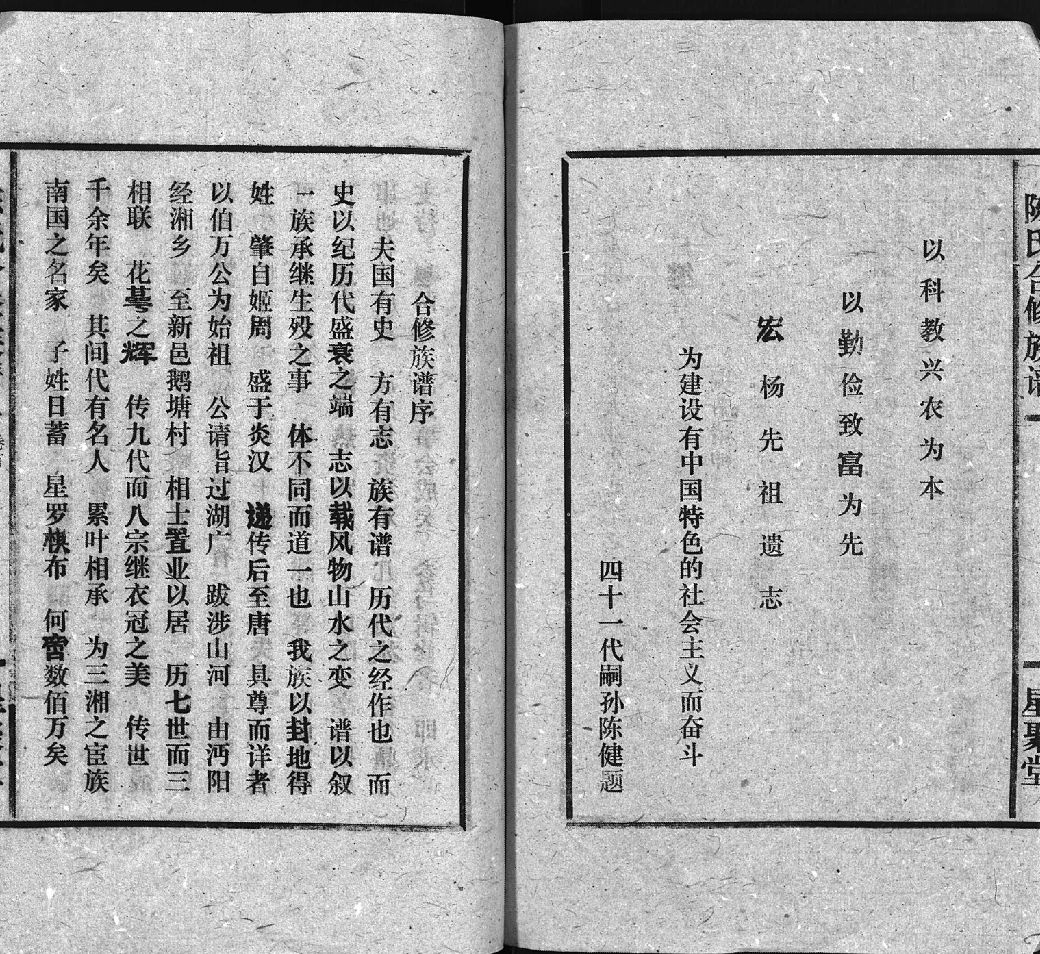 陈氏合修族谱
星聚堂
以科教兴农为本
以勤俭致富为先
宏杨先祖遗志
为建设有中国特色的社会主义而奋斗
四十一代嗣孙陈健题
合修族谱序
夫国有史 方有志 族有谱 历代之经作也 而
史以纪历代盛衰之端 志以载风物山水之变 谱以叙
一族承继生殁之事 体不同而道一也 我族以封地得
姓 肇自姬周 盛于炎汉 递传后至唐 具尊而详者
以伯万公为始祖 公请旨过湖广 跋涉山河 由沔阳
经湘乡 至新邑鹅塘村 相土置业以居 历七世而三
相联 花萼之辉 传九代而八宗继衣冠之美 传世
千余年矣 其间代有名人 累叶相承 为三湘之宦族
南国之名家 子姓日蓄 星罗棋布 何啻数佰万矣